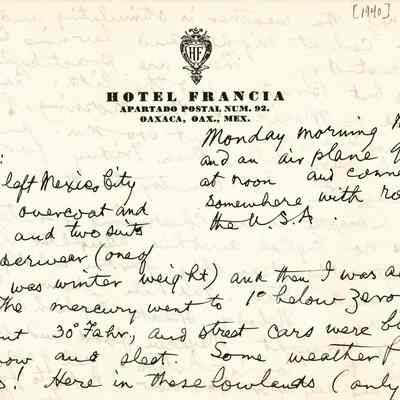 [1940]
HF
HOTEL FRANCIA
APARTADO POSTAL NUM. 92.
OAXACA, OAX., MEX.
Monday morning
and an air plane
at noon and conne
somewhere with
the U.S.A.
left Mexico City
overcoat and
and two suits
derwear (one of
was winter weight) and then I was
The mercury went to 1° below zero
30° Fahr., and street cars were
now and sleet. Some weather f
s! Here in these lowlands (only